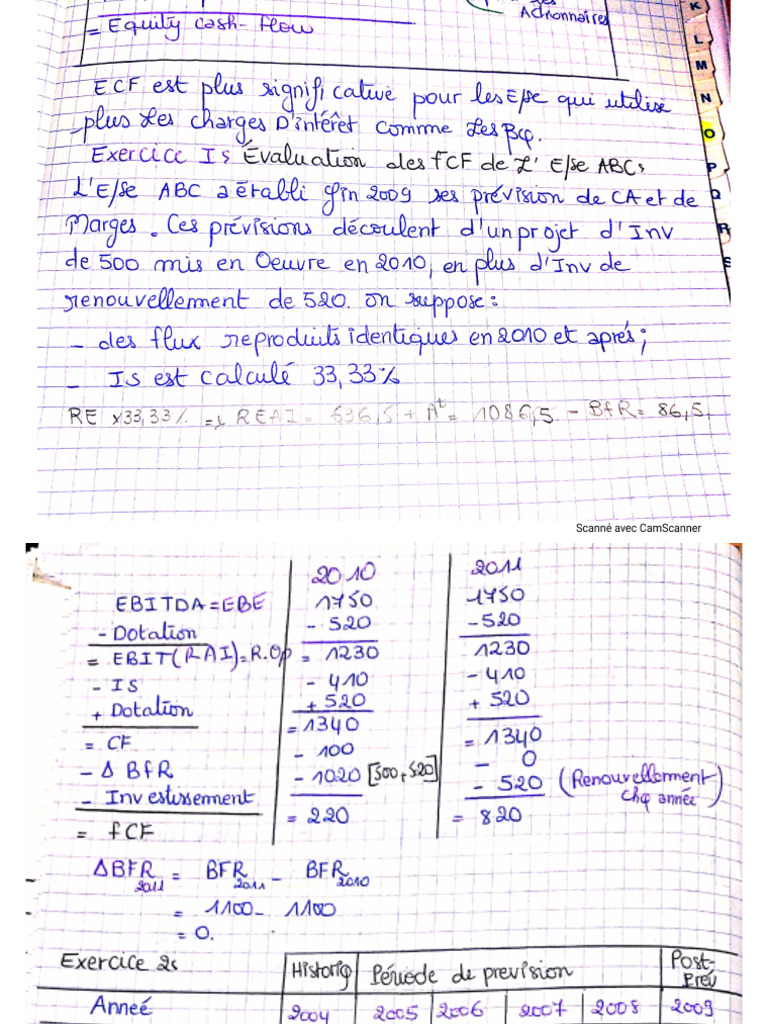 Actionnaires
= Equity cash-flow
ECF est plus significative pour les E/se qui utilise
plus des charges D'intérêt comme les Bq.
Exercice I: Évaluation des fCF de L' E/se ABC:
L'E/se ABC a établi fin 2009 ses prévision de CA et de
Marges. Ces prévisions découlent d'un projet d'Inv
de 500 mis en Oeuvre en 2010, en plus d'Inv de
renouvellement de 520. on suppose:
- des flux reproduits identiques en 2010 et aprés;
- Is est calculé 33,33%
RE x33,33% => REAI = 636,5 + = 1086,5 - BfR = 86,5
K
L
M
N
O
P
Q
R
S
Scanné avec CamScanner
2010 2011
EBITDA=EBE 1750 1750
- Dotation - 520 -520
= EBIT(RAI)=R.Op = 1230 1230
- IS - 410 - 410
+ Dotation + 520 + 520
= CF = 1340 = 1340
- Δ BfR - 100 - 0
- Investissement - 1020 [500+520] - 520 (Renouvellement chq année)
= fCF = 220 = 820
ΔBFR 2011 = BFR 2011 - BFR 2010
= 1100 - 1100
= 0.
Exercice 2: Historiq Période de prevision Post-Prév
Anneé 2004 2005 2006 2007 2008 2009